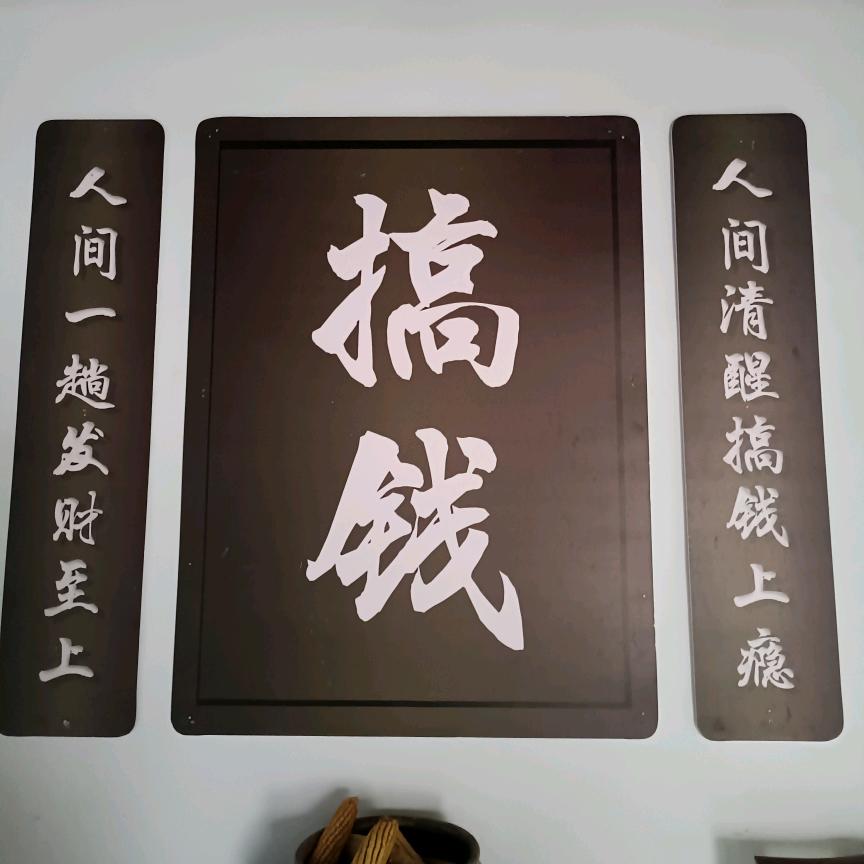 人间一趟发财至上
搞钱
人间清醒搞钱上瘾